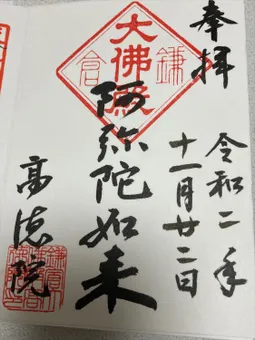 奉拝
令和二年
十一月廿二日
鎌倉
大佛殿
阿弥陀如来
高徳院